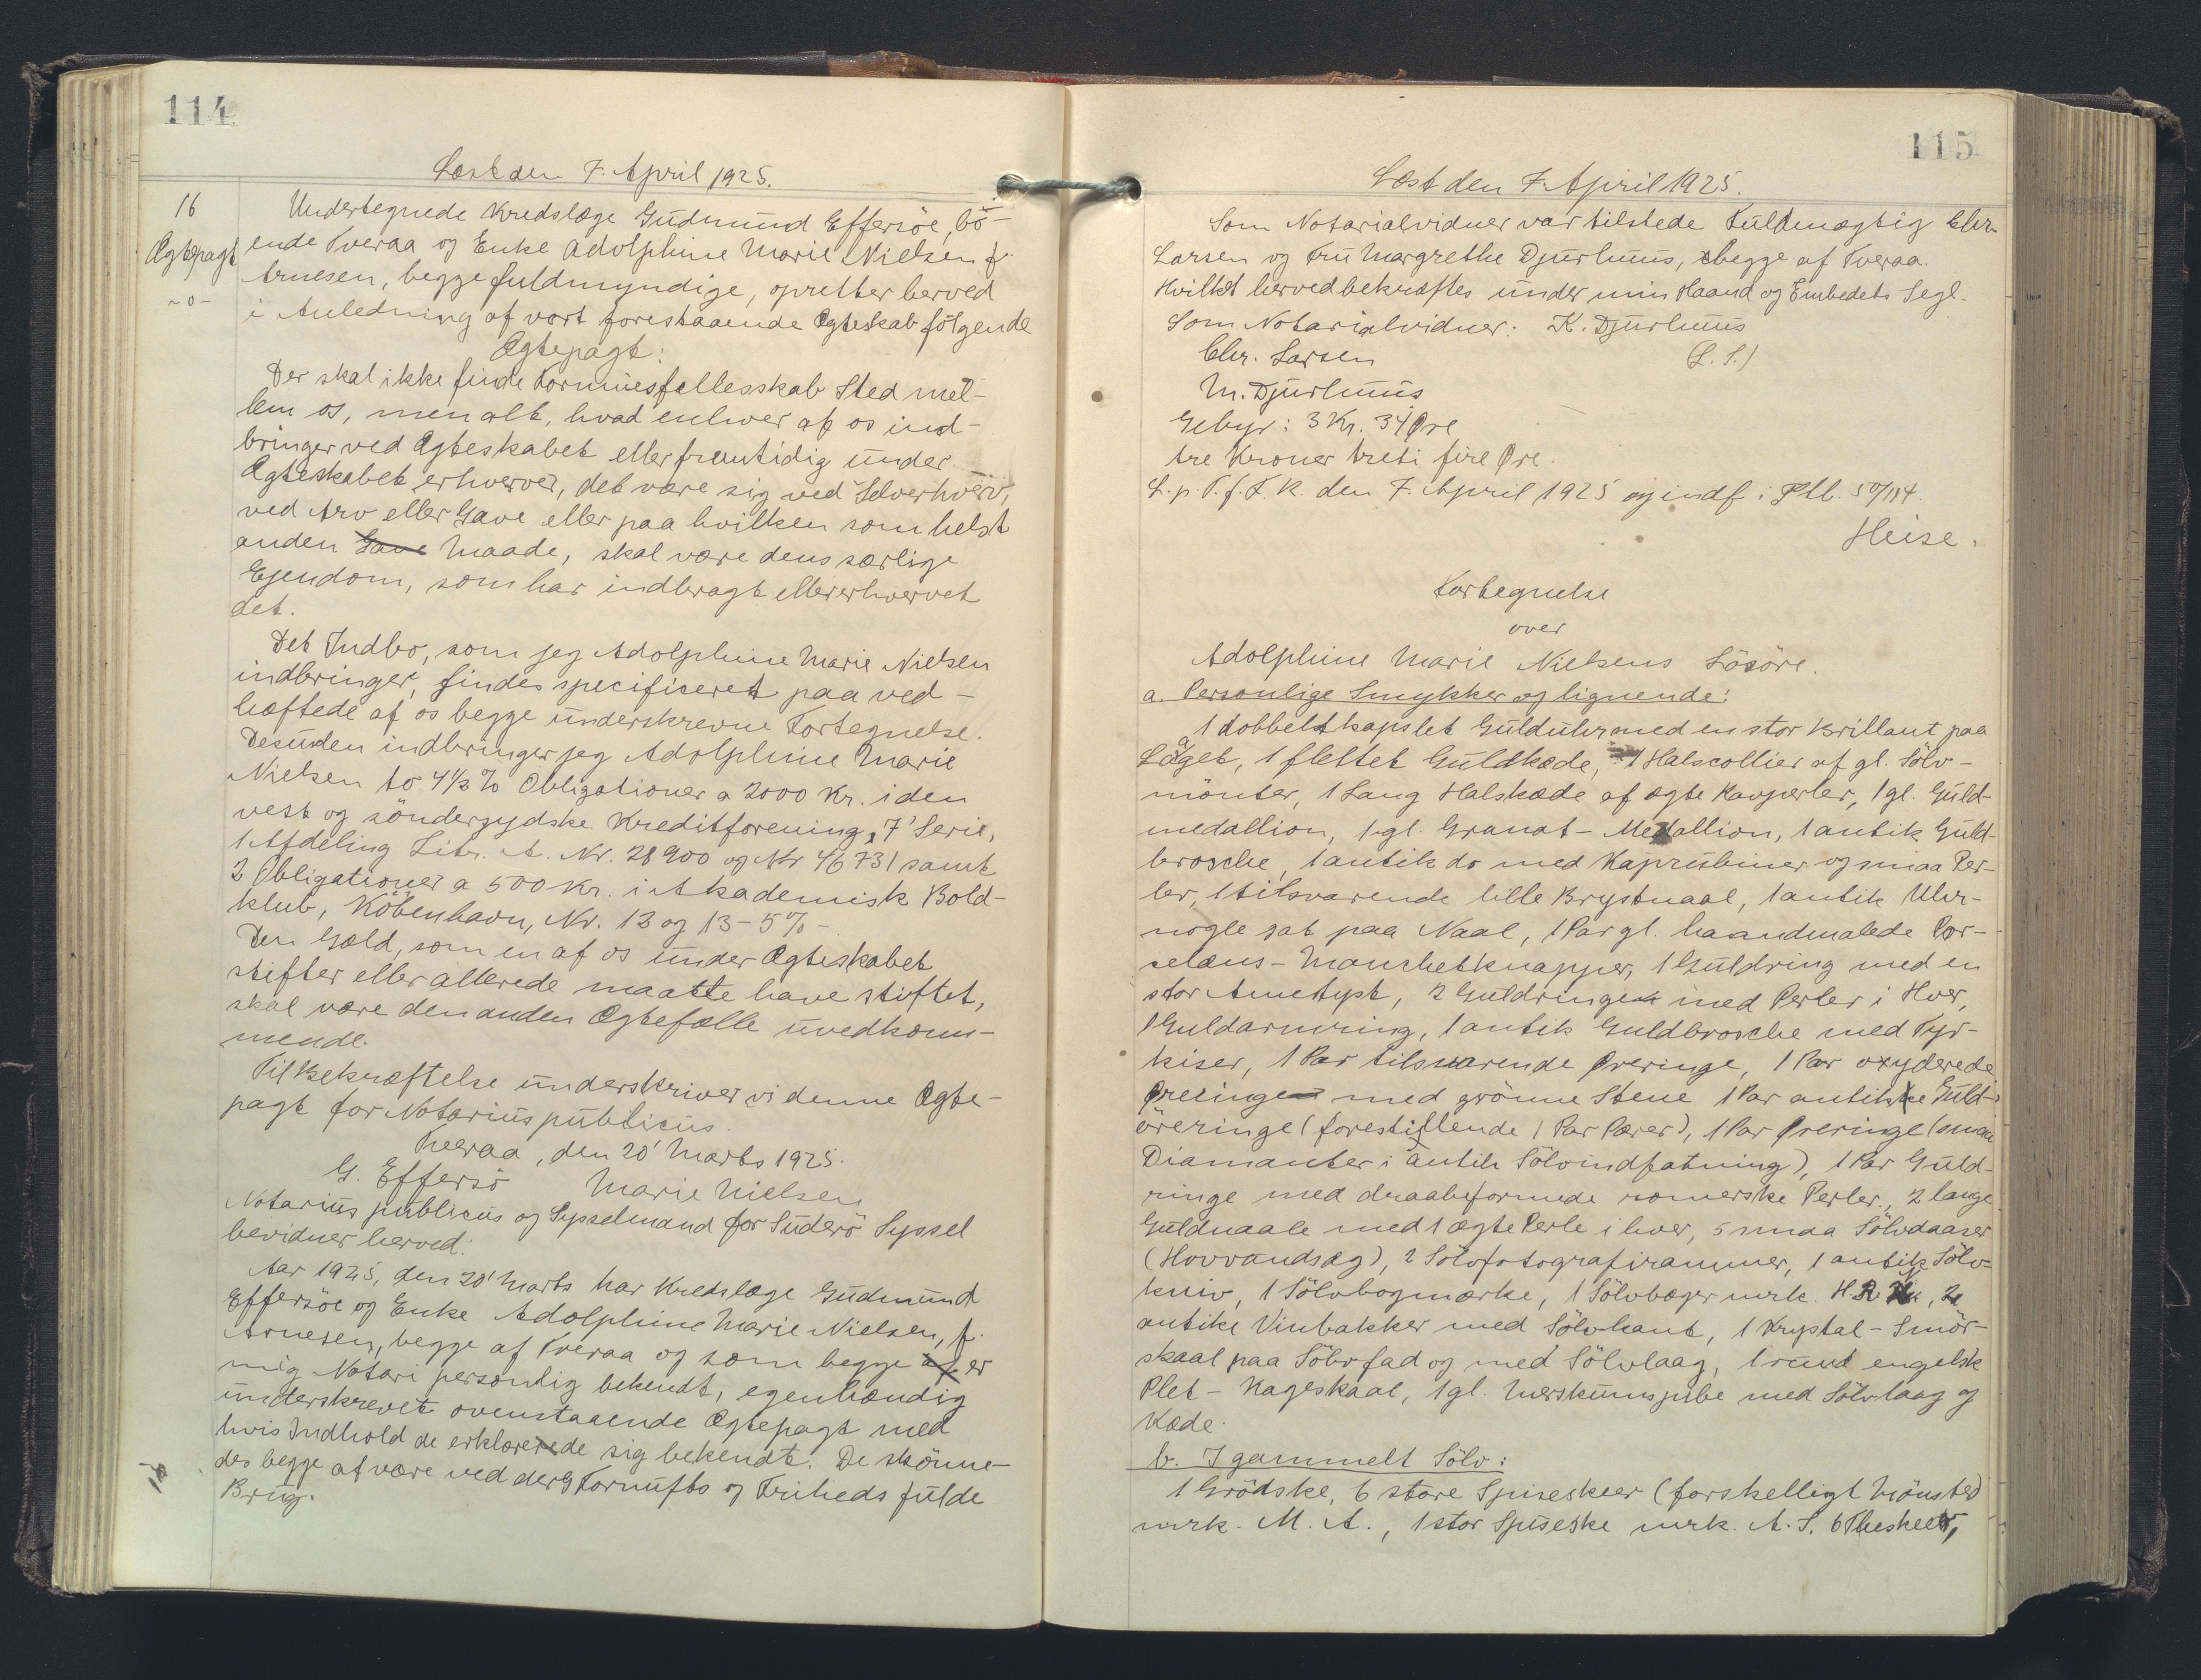 114
Læst den 7. April 1925.
16
Ægtepagt
-o-
Undertegnede Kredslæge Gudmund Effersöe, bö-
ende Tveraa og Enke Adolphine Marie Nielsen f.
Arnesen, begge fuldmyndige, opretter herved
i Anledning af vort forestaaende Ægteskab fölgende
Ægtepagt:
Der skal ikke finde Formuesfællesskab Sted mel-
lem os, men alt, hvad enhver af os ind-
bringer ved Ægteskabet eller fremtidig under
Ægteskabet erhverver, det være sig ved Selverhverv,
ved Arv eller Gave eller paa hvilken som helst
anden Gave Maade, skal være dens særlige
Ejendom, som har indbragt eller erhvervet
det.
Det Indbo, som jeg Adolphine Marie Nielsen
indbringer, findes specificeret paa ved-
hæftede af os begge underskrevne Fortegnelse.
Desuden indbringer jeg Adolphine Marie
Nielsen to 4½ % Obligationer a 2000 Kr. i den
vest og sönderjydske Kreditforening, 7' Serie,
1 Afdeling Litr. A. Nr. 28900 og Nr 46731 samt
2 Obligationer a 500 Kr. i Akademisk Bold-
klub, Köbenhavn, Nr. 12 og 13 - 5% -
Den Gæld, som en af os under Ægteskabet
stifter eller allerede maatte have stiftet,
skal være den anden Ægtefælle uvedkom-
mende.
Til Bekræftelse underskriver vi denne Ægte-
pagt for Notarius publicus.
Tveraa, den 20' Marts 1925.
G. Effersö Marie Nielsen
Notarius publicus og Sysselmand for Suderö Syssel
bevidner herved:
Aar 1925, den 20' Marts har Kredslæge Gudmund
Effersöe og Enke Adolphine Marie Nielsen, f.
Arnesen, begge af Tveraa og som begge af er
mig Notari personlig bekendt, egenhændig
underskrevet ovenstaaende Ægtepagt med
hvis Indhold de erklærerede sig bekendt. De skönne-
des begge at være ved deres Fornufts og Friheds fulde
Brug.
115
Læst den 7. April 1925.
Som Notarialvidner var tilstede Fuldmægtig Chr.
Larsen og Fru Margrethe Djurhuus, begge af Tveraa.
Hvilket herved bekræftes under min Haand og Embedets Segl.
Som Notarialvidner: K. Djurhuus
Chr. Larsen (L. S.)
M. Djurhuus
Gebyr: 3 Kr. 34 Øre
tre Kroner treti fire Øre.
L. p. T. f. F. R. den 7. April 1925 og indf i Ptb. 50/114.
Heise.
Fortegnelse
over
Adolphine Marie Nielsens Lösöre.
a. Personlige Smykker og lignende:
1 dobbeltkapslet Guldulur med en stor Brillant paa
Laaget, 1 flettet Guldkæde, 1 Halscollier af gl. Sölv-
mönter, 1 Lang Halskæde af ægte Ravperler, 1 gl. Guld-
medallion, 1 gl. Granat-Medallion, 1 antik Guld-
brosche, 1 antik do med Kaprubiner og smaa Per-
ler, 1 tilsvarende lille Brystnaal, 1 antik Uhr-
nögle sat paa Naal, 1 Par gl. haandmalede Por-
celæns-Manchetknapper, 1 Guldring med en
stor Ametyst, 2 Guldringe med Perler i Hver,
1 Guldarmring, 1 antik Guldbrosche med Tyr-
kiser, 1 Par tilsvarende Øreringe, 1 Par oxyderede
Øreringe med grönne Stene 1 Par antikke Guld-
öreringe (forestillende 1 Par Pærer), 1 Par Øreringe (smaa
Diamanter i antik Sölvindfatning), 1 Par Guld-
ringe med draabeformede romerske Perler, 2 lange
Guldnaale med 1 ægte Perle i hver, 5 smaa Sölvdaaser
(Hovvandsæg), 2 Sölvfotografirammer, 1 antik Sölv-
kniv, 1 Sölvbogmærke, 1 Sölvbæger mrk. H. R. , 2
antike Vinbakker med Sölvkant, 1 Krystal-Smör-
skaal paa Sölvfad og med Sölvlaag, 1 rund engelsk
Plet-Kageskaal, 1 gl. Merskumspibe med Sölvlaag og
Kæde.
b. I gammelt Sölv:
1 Grödske, 6 store Spiseskeer (forskelligt Mönster)
mrk. M. A., 1 stor Spiseske mrk. A. S. 6 Theskeer,